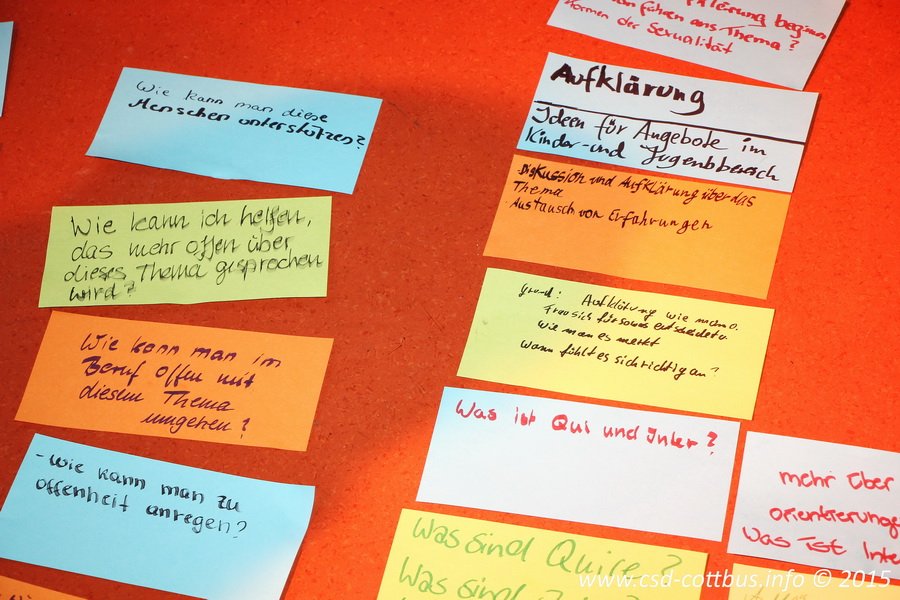 Wie kann man diese
Menschen unterstützen?
Wie kann ich helfen,
das mehr offen über
dieses Thema gesprochen
wird?
Wie kann man im
Beruf offen mit
diesem Thema
umgehen?
-Wie kann man zu
offenheit anregen?
beginnen
führen ans Thema?
Formen der Sexualität
Aufklärung
Ideen für Angebote im
Kinder-und Jugendbereich
Diskussion und Aufklärung über das
Thema
Austausch von Erfahrungen
Grund: Aufklärung wie man o.
Frau sich für sowas entscheidet
Wie man es merkt
Wann fühlt es sich richtig an?
Was ist Qui und Inter?
mehr über
orientierunge
Was ist Inte
Was sind Quire?
Was sind
www.csd-cottbus.info © 2015